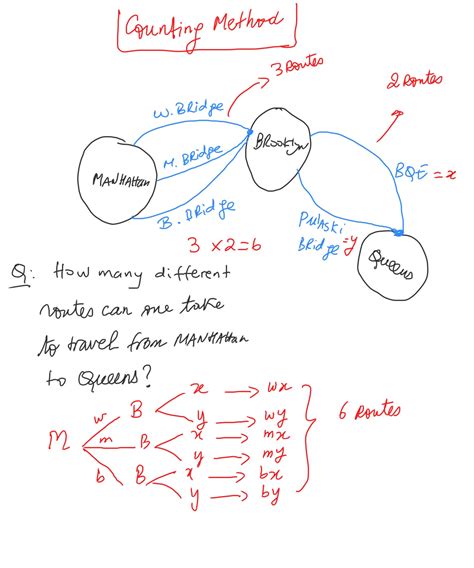 Counting Method
3 Routes
2 Routes
W. BRidge
BRooklyn
M. BRidge
MANHAttan
BQE = x
B. BRidge
PulAski
BRidge = y
3 × 2 = 6
Queens
Q: How many different
routes can one take
to travel from MANHAttan
to Queens?
M
w B x → wx
y → wy
m B x → mx
y → my
b B x → bx
y → by
6 Routes